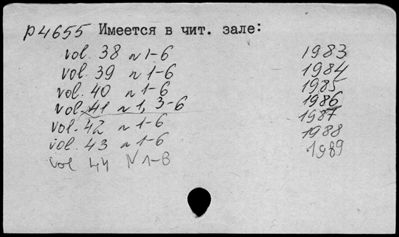 р4655 Имеется в чит. зале:
vol. 38 N 1-6 1983
vol. 39 N 1-6 1984
vol. 40 N 1-6 1985
vol. 41 N 1, 3-6 1986
vol. 42 N 1-6 1987
vol. 43 N 1-6 1988
vol 44 N 1-6 1989